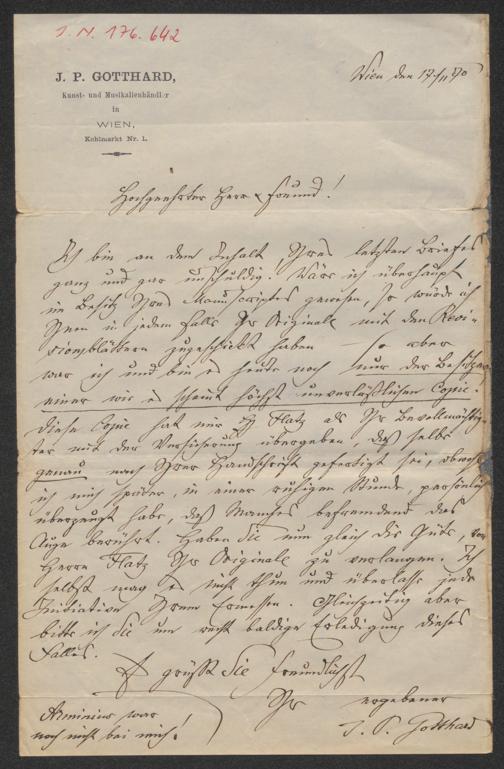 I. N. 176.642
J. P. GOTTHARD,
Kunst- und Musikalienhändler
in
WIEN,
Kohlmarkt Nr. 1.
Wien den 17/11 70
Hochgeehrter Herr & Freund!
Ich bin an dem Inhalt Ihres letzten Briefes
ganz und gar unschuldig. Wäre ich überhaupt
im Besitz Ihres Manuscriptes gewesen, so würde ich
Ihnen in jedem Falle Ihr Originale mit den Revi-
sionsblättern zugeschickt haben – so aber
war ich und bin es heute noch nur der Besitzer
einer wie es scheint höchst unverläßlichen Copie.
Diese Copie hat mir H Flatz als Ihr Bevollmächtig-
ter mit der Versicherung übergeben, daß selbe
genau nach Ihrer Handschrift gefertigt sei, obwohl
ich mich später, in einer ruhigen Stunde, persönlich
überzeugt habe, daß Manches befremdend das
Auge berührt. Haben Sie nun gleich die Güte, von
Herrn Flatz Ihr Originale zu verlangen. Ich
selbst mag es nicht thun und überlasse jede
Initiative Ihrem Ermessen. Gleichzeitig aber
bitte ich Sie um recht baldige Erledigung dieses
Falles.
Es grüßt Sie freundlichst
Ihr ergebener
J. P. Gotthard
Arminius war
noch nicht bei mir!